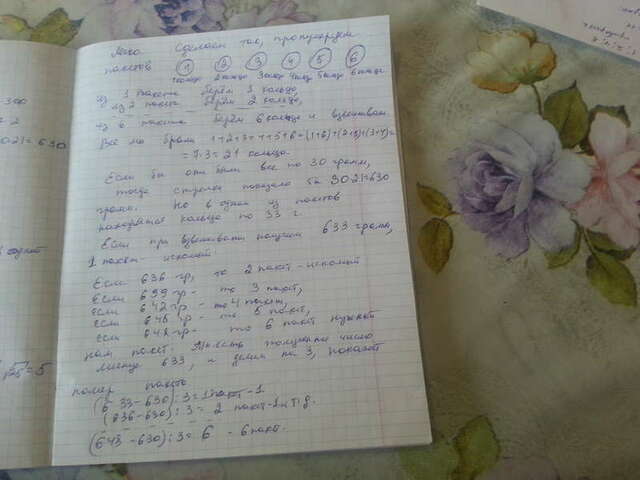 300
= 2
021= 630
= 5
Легко сделаем так, пронумеруем
пакетов 1 2 3 4 5 6
1кольцо 2кольца 3кольца 4кольца 5кольцо 6кольца
из 1 пакета берём 1 кольцо,
из 2 пакета берём 2 кольца,
из 6 пакета берём 6 кольца и взвешиваем.
Все мы брали 1+2+3+4+5+6=(1+6)+(2+5)+(3+4)=
= 7·3=21 кольцо.
Если бы они были все по 30 грамм,
тогда стрелка показала бы 30·21=630
грамм. Но в одном из пакетов
находятся кольца по 33 г.
Если при взвешивании получим 633 грамм,
1 пакет - искомый.
Если 636 гр, то 2 пакет - искомый
Если 639 гр - то 3 пакет,
Если 642 гр - то 4 пакет,
Если 645 гр - то 5 пакет,
Если 648 гр - то 6 пакет нужный
нам пакет. полученное число
минус 633, и делим на 3, покажет
номер пакета
(633-630):3=1 пакет-1.
(636-630):3=2 пакет-2 и т.д.
(648-630):3=6 - 6 пакет.